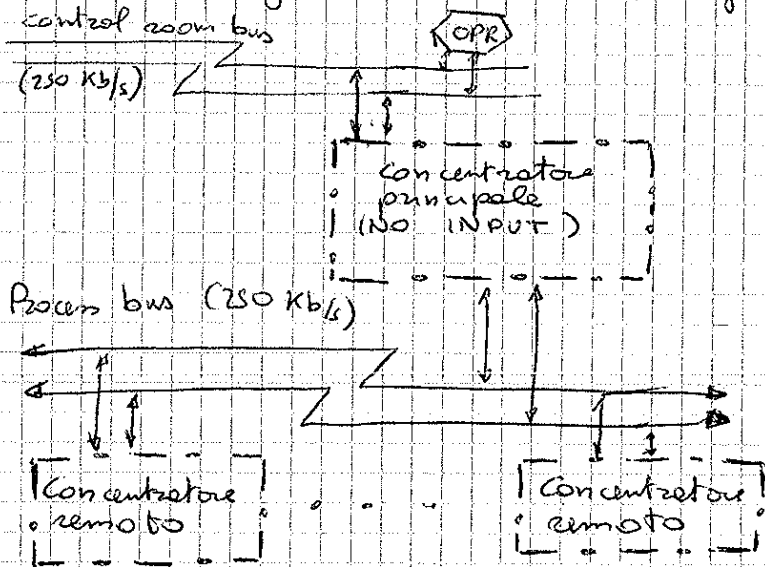 control room bus
OPR
(250 Kb/s)
Concentratore
principale
(NO INPUT)
Process bus (250 Kb/s)
Concentratore
remoto
Concentratore
remoto